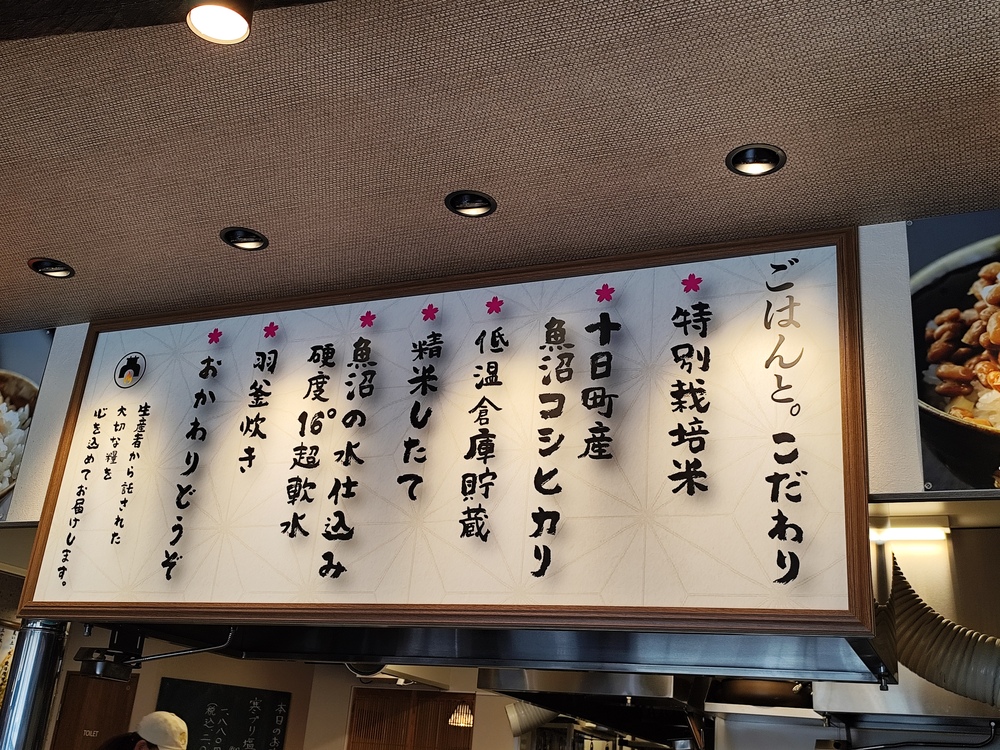 ごはんと。こだわり
特別栽培米
十日町産
魚沼コシヒカリ
低温倉庫貯蔵
精米したて
魚沼の水仕込み
硬度16°超軟水
羽釜炊き
おかわりどうぞ
生産者から託された
大切な糧を
心を込めてお届けします。
TOILET
本日のお
寒ブリ塩